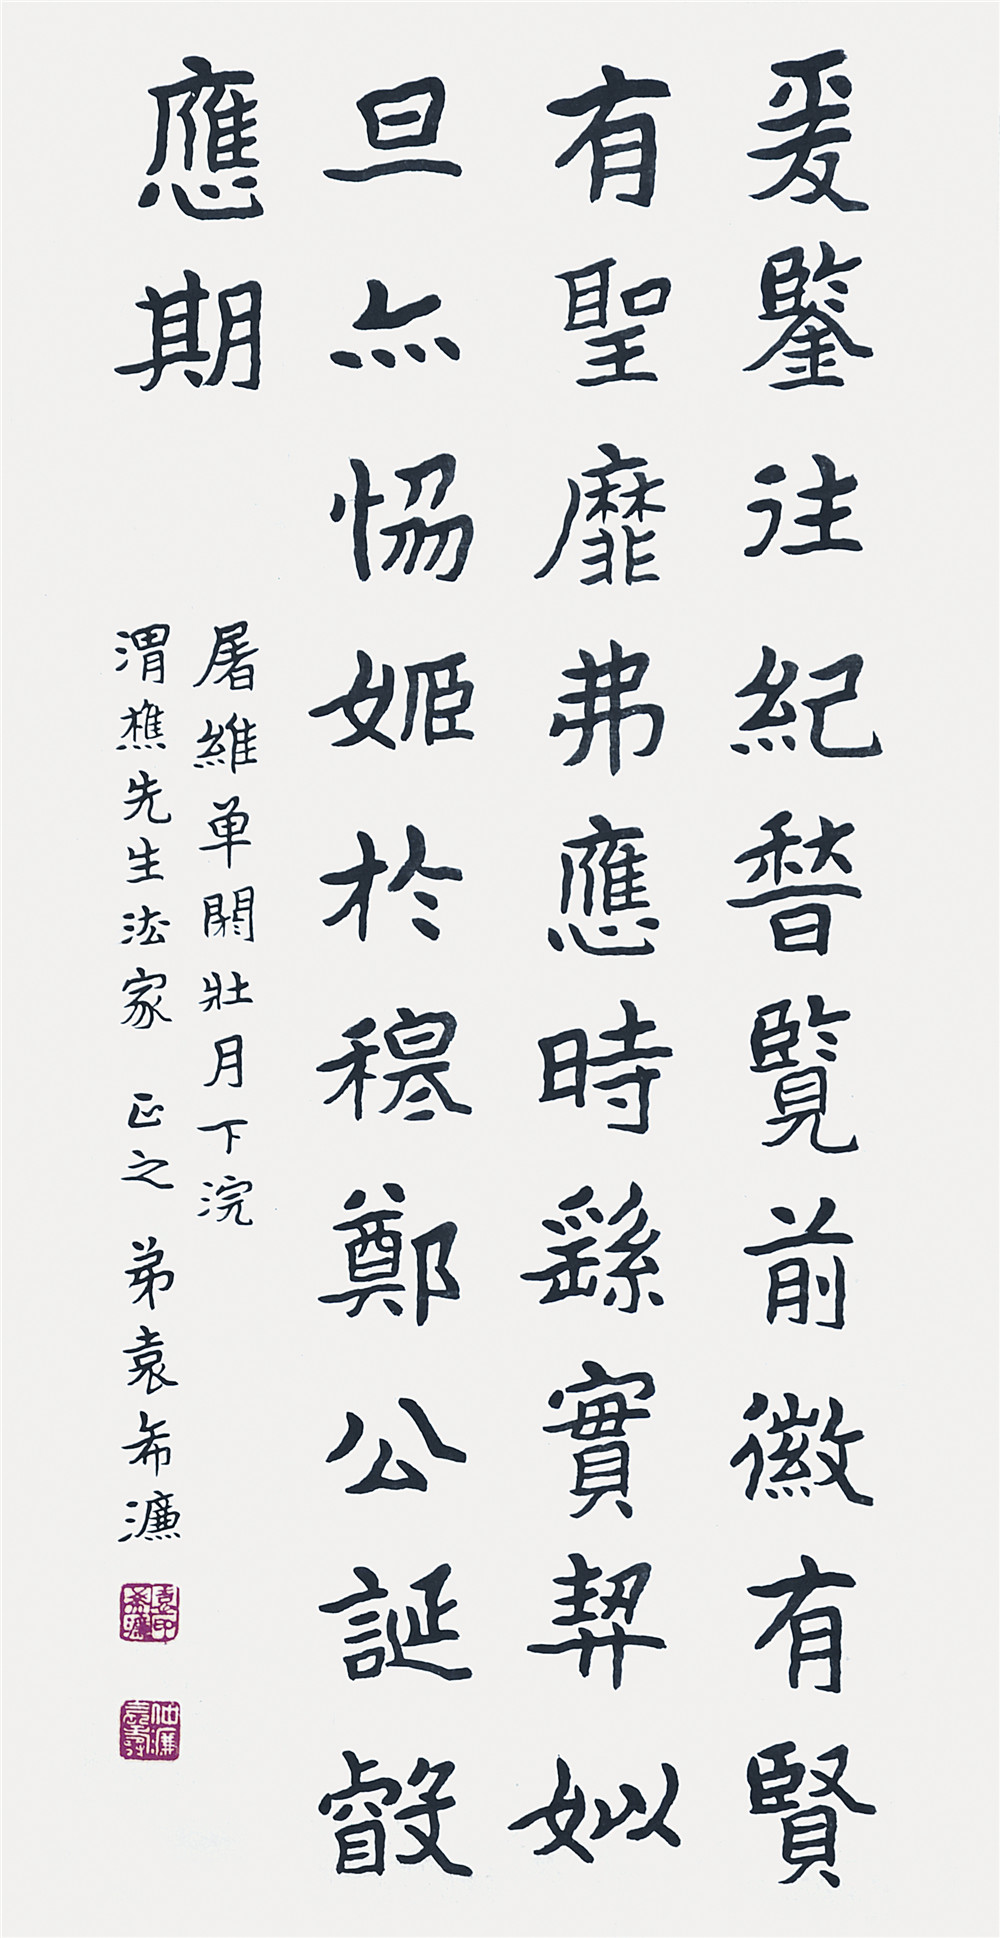 爰鑒往紀晉覽前徽有賢
有聖靡弗應時繇實契姒
旦亦恊姬於穆鄭公誕叡
應期
屠維单閼壮月下浣
渭樵先生法家 正之 弟袁希濂